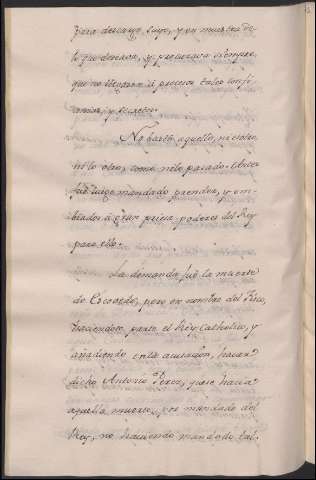 para descargo suyo, y en muestra de
lo que deseava, y procurava siempre,
que no llegaran á perderse tales confi-
anzas, y secretos.
No bastó aquello, ni esto
ni lo otro, como ni lo pasado. Antes
fué luego mandado prender, y em-
biados á gran priesa poderes del Rey
para ello.
La demanda fué la muerte
de Escovedo, pero en nombre del Fisco,
haciendose parte el Rey Catholico, y
añadiendo en la acusacion, haver
dicho Antonio Perez, que se hacia
aquella muerte, de mandado del
Rey, no haviendo mandado tal.